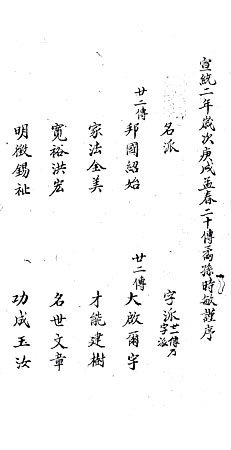 宣統二年歲次庚戌孟春二十傳裔孫時敏謹序
名派
字派
廿二傳
邦國紹始
廿二傳
大啟爾宇
家法全美
才能建樹
寬裕洪宏
名世文章
明徵錫祉
功成玉汝